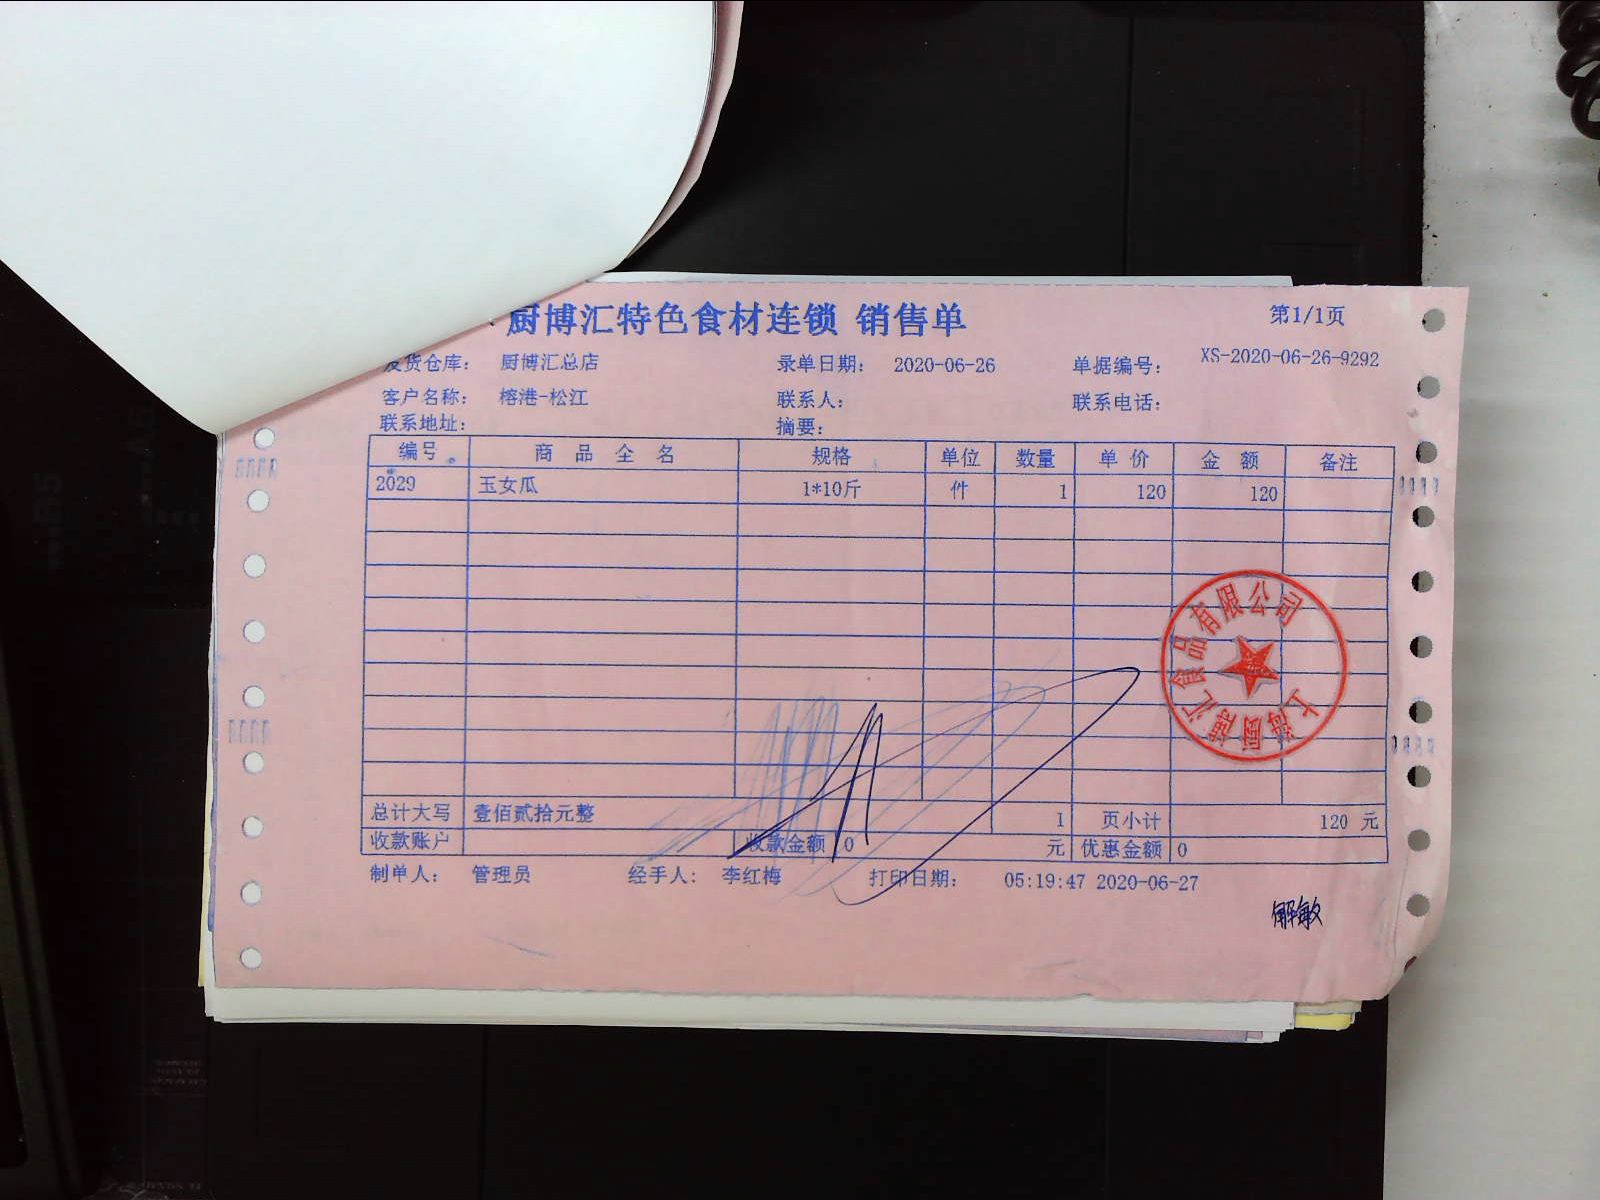 厨博汇特色食材连锁 销售单
第1/1页
发货仓库： 厨博汇总店 录单日期： 2020-06-26 单据编号： XS-2020-06-26-9292
客户名称： 榕港-松江 联系人： 联系电话：
联系地址： 摘要：
编号 商 品 全 名 规格 单位 数量 单 价 金 额 备注
2029 玉女瓜 1*10斤 件 1 120 120
总计大写 壹佰贰拾元整 1 页小计 120 元
收款账户 收款金额 0 元 优惠金额 0
制单人： 管理员 经手人： 李红梅 打印日期： 05:19:47 2020-06-27
解敏